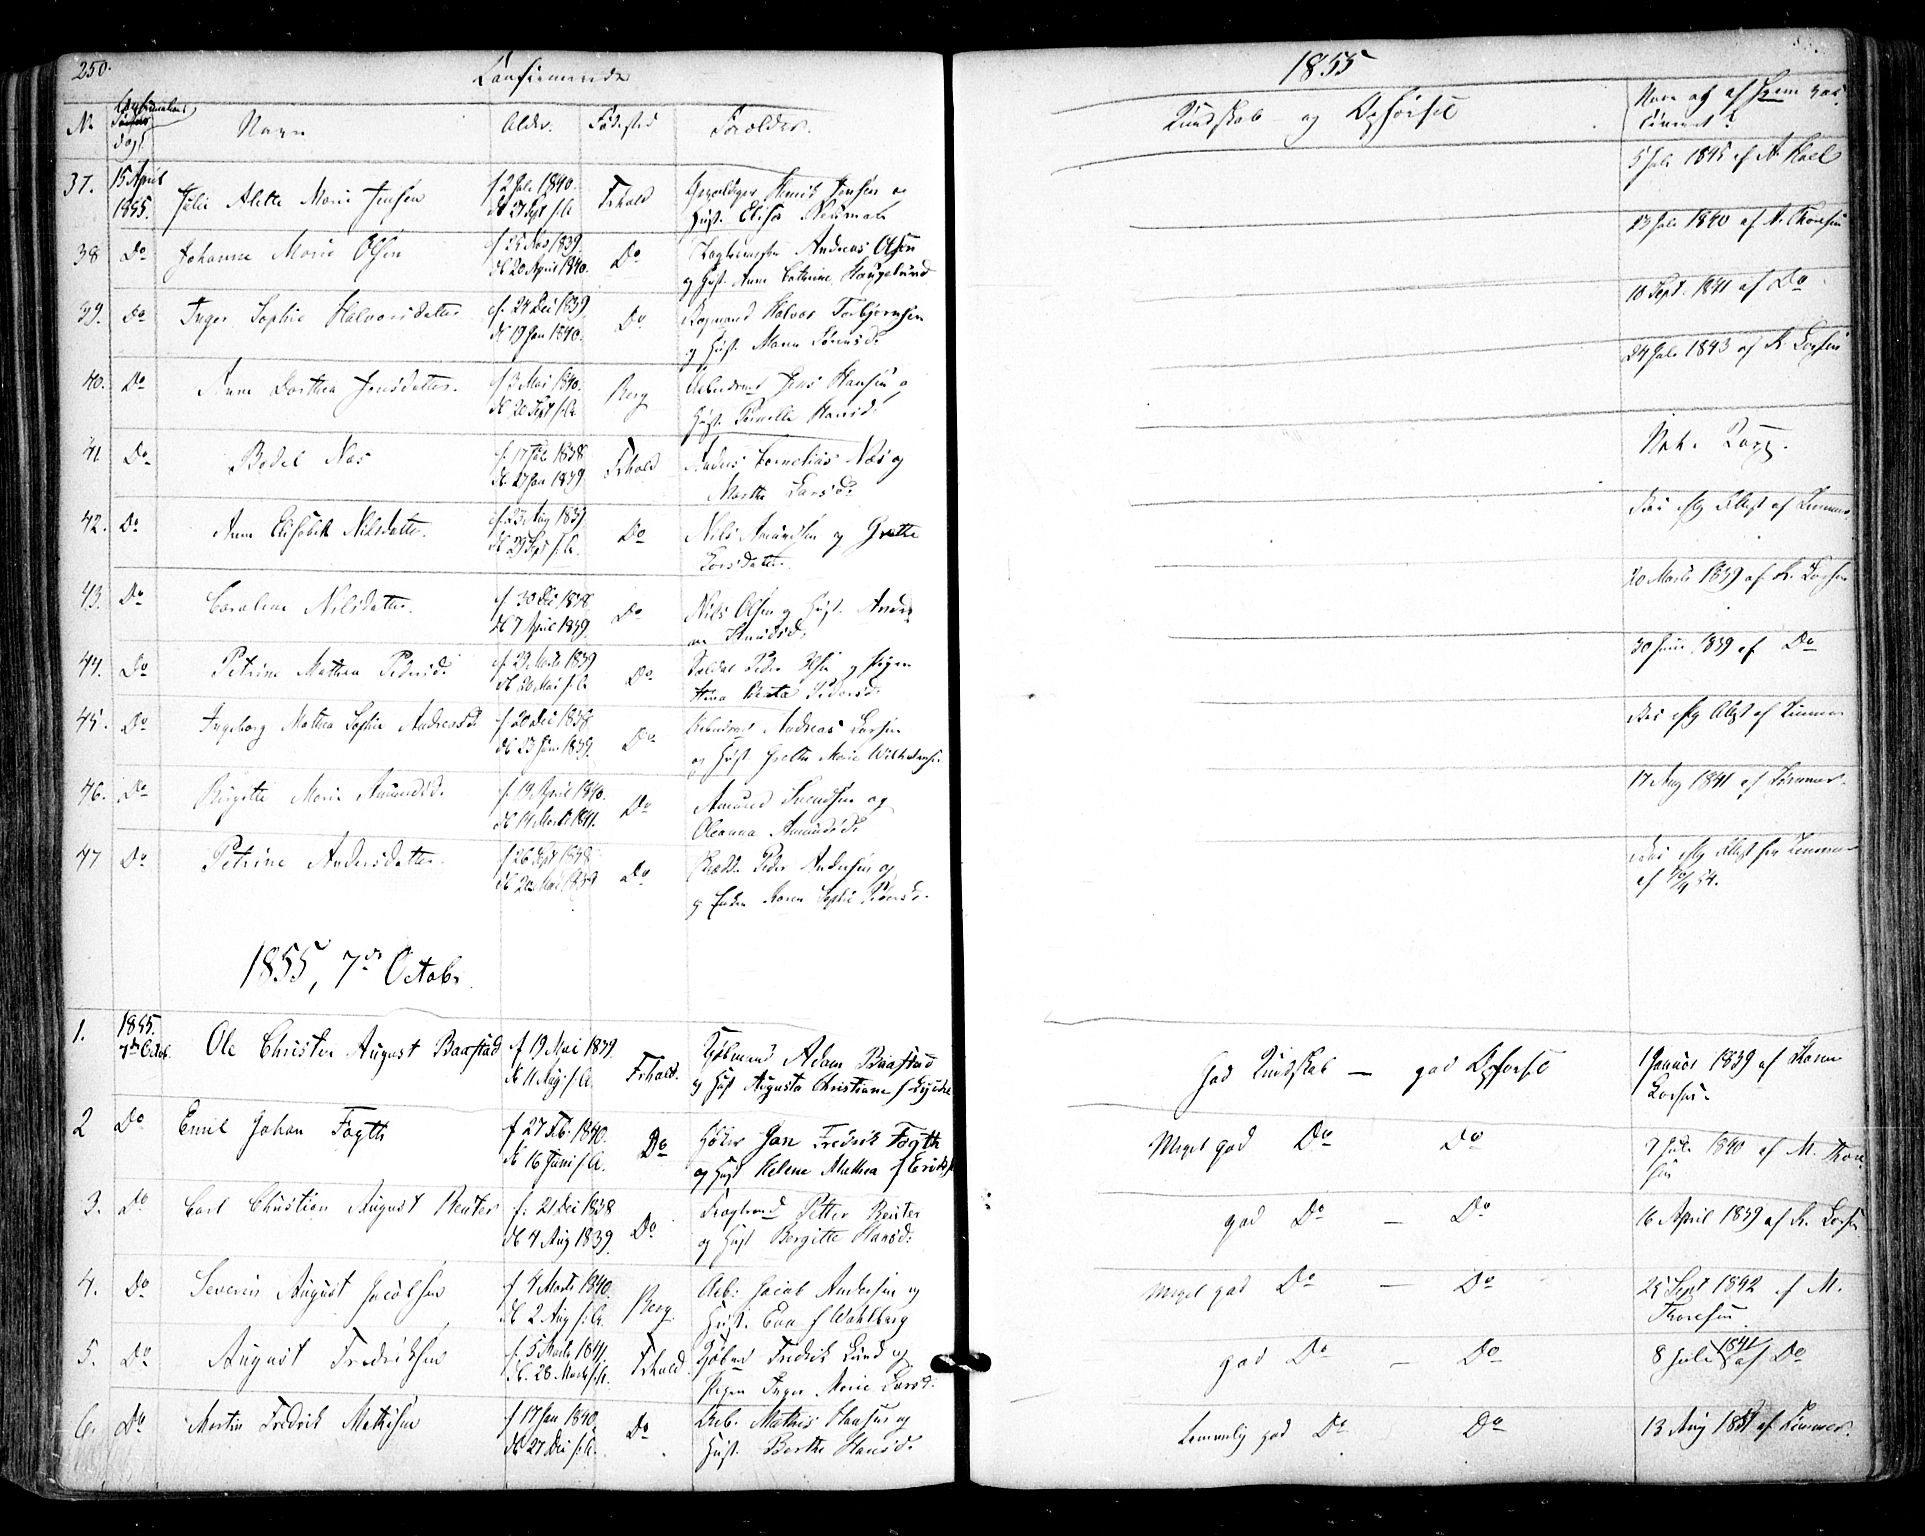 250.
Confirmerede
1855
No
Confirmations
dag
Navn
Alder.
Fødested
Forældre.
Kundskab og Opførsel
Naar og af hvem vac-
cineret?
37.
15 April
1855.
Julie Alette Marie Jensen
f 2 Juli 1840.
db 27 Sept s. A.
Frhald
Henrik Jensen og
Hust. Elise
5 Juli 1845 af
38
Do
Johanne Marie Olsen
f 25 Nov 1839
db 20 April 1840.
Do
Andreas Olsen
og Hust. Anne Catrine Haugelund
23 Juli 1840 af M. Thoresen
39.
Do
Inger Sophie Halvorsdatter
f. 24 Dec 1839,
db 19 Jan 1840.
Do
Halvor Torbjørnsen
og Hust. Maren Sørensd.
10 Sept. 1841 af Do
40.
Do
Anne Dorthea Jensdatter.
f 3 Mai 1840.
db 20 Sept s. A.
Berg
Jens Hansen og
Hust. Pernille Hansd.
24 Juli 1843 af K. Larsen
41
Do
Bodel Næs
f. 17 Juli 1838
db. 27 Jan 1839
Frhald
Anders Cornelius Næs og
Marthe Larsd.
42.
Do
Anne Elisabeth Nilsdatter.
f. 23 Aug 1839
db 29 Sept s. A.
Do
Nils Amundsen og Grethe
Larsdatter.
43.
Do
Caroline Nilsdatter.
f 30 Dec 1838
db 7 April 1839.
Do
Nils Olsen og Hust. Andr-
ea Knudsd.
20 Marts 1839 af K. Larsen
44.
Do
Petrine Mathea Pedersd.
f. 29 Marts 1839
db 20 Mai s. A.
Do
Soldat Peder Olsen og Pigen
Berta Pedersd.
30 Juni 1839 af Do
45.
Do
Ingeborg Mathea Sophie Andreasd.
f 20 Dec 1838
db 23 Juni 1839.
Do
Andreas Larsen
og Hust Grethe Marie Wilhelmsen
46.
Do
Birgitte Marie Amundsd.
f. 19 April 1840.
db 14 Marts 1841.
Do
Amund Svendsen og
Oleanna Amundsd.
17 Aug 1841 af Lømmer.
47
Do
Petrine Andersdatter.
f 26 Sept 1838
db 20 Mai 1839
Do
Peder Andersen og
Karen Sophie Pedersd.
1855, 7de Octobr
1.
1855.
7de Octob.
Ole Christen August Baastad
f 19 Mai 1839.
db 11 Aug. s. A.
Frhald.
Kjøbmand Adam Baastad
og Hust Augusta Christiane f
God Kundskab — god Opførsel
1 Januar 1839 af Karen
Larsen.
2
Do
Emil Johan Fogth
f 27 Feb. 1840.
db 16 Juni s. A.
Do
Høker Jan Fredrik Fogth
og Hust Helene Mathea f Eriksen
Meget god Do Do
7 Juli 1840 af M. Thore-
sen
3.
Do
Carl Christian August Reuter
f. 21 Dec 1838
db 4 Aug 1839.
Do
Petter Reuter
og Hust Bergitte Hansd.
god Do — Do
16 April 1839 af K. Larsen
4.
Do
Severin August Jacobsen
f 4 Marts 1840.
db 2 Aug s. A.
Berg.
Arb. Jacob Andersen og
Hust. Eva f Wahlberg
Meget god Do — Do
25 Sept 1842 af M.
Thoresen
5.
Do
August Fredriksen
f. 5 Marts 1841
db. 28 Marts s. A.
Frhald.
Fredrik Lund og
Pigen Inger Marie Larsd.
god Do — Do
8 Juli 1841 af Do
6.
Do
Martin Fredrik Mathisen
f 17 Jan 1840.
db 27 Dec s. A.
Do
Arb. Mathis Hansen og
Hust. Berthe Hansd.
temmelig god Do Do
13 Aug af Lømmer.